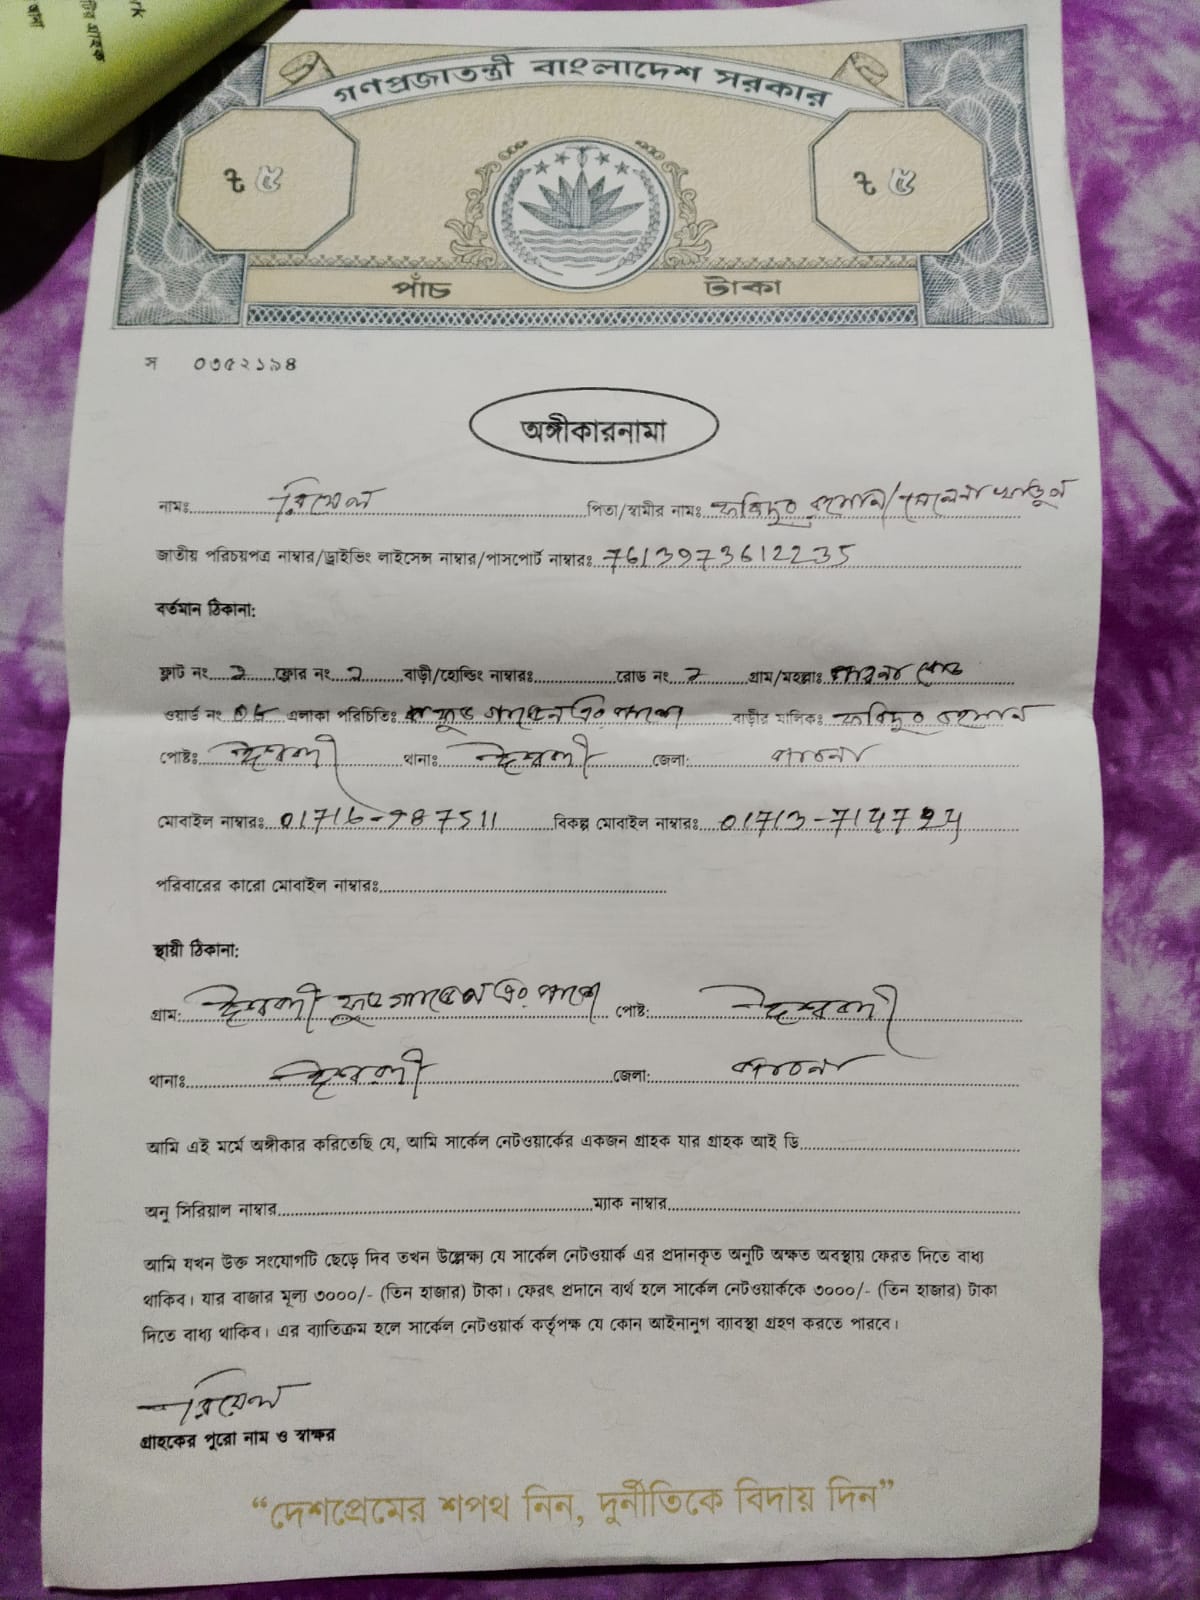 rk
গণপ্রজাতন্ত্রী বাংলাদেশ সরকার
৳ ৫
৳ ৫
পাঁচ টাকা
স ০৩৫২১৯৪
অঙ্গীকারনামা
নামঃ রিয়েল পিতা/স্বামীর নামঃ ফরিদুর রহমান/ খাতুন
জাতীয় পরিচয়পত্র নাম্বার/ড্রাইভিং লাইসেন্স নাম্বার/পাসপোর্ট নাম্বারঃ 7613973612235
বর্তমান ঠিকানা:
ফ্লাট নং ২ ফ্লোর নং ২ বাড়ী/হোল্ডিং নাম্বারঃ রোড নং ২ গ্রাম/মহল্লাঃ পাবনা রোড
ওয়ার্ড নং এলাকা পরিচিতিঃ ফুড গোডাউন এর পাশে বাড়ীর মালিকঃ ফরিদুর রহমান
পোষ্টঃ ঈশ্বরদী থানাঃ ঈশ্বরদী জেলা: পাবনা
মোবাইল নাম্বারঃ 01716-987511 বিকল্প মোবাইল নাম্বারঃ 01713-714724
পরিবারের কারো মোবাইল নাম্বারঃ
স্থায়ী ঠিকানা:
গ্রাম: ঈশ্বরদী ফুড গোডাউন এর পাশে পোষ্ট: ঈশ্বরদী
থানাঃ ঈশ্বরদী জেলা: পাবনা
আমি এই মর্মে অঙ্গীকার করিতেছি যে, আমি সার্কেল নেটওয়ার্কের একজন গ্রাহক যার গ্রাহক আই ডি
অনু সিরিয়াল নাম্বার ম্যাক নাম্বার
আমি যখন উক্ত সংযোগটি ছেড়ে দিব তখন উল্লেক্ষ্য যে সার্কেল নেটওয়ার্ক এর প্রদানকৃত অনুটি অক্ষত অবস্থায় ফেরত দিতে বাধ্য
থাকিব। যার বাজার মূল্য ৩০০০/- (তিন হাজার) টাকা। ফেরৎ প্রদানে ব্যর্থ হলে সার্কেল নেটওয়ার্ককে ৩০০০/- (তিন হাজার) টাকা
দিতে বাধ্য থাকিব। এর ব্যাতিক্রম হলে সার্কেল নেটওয়ার্ক কর্তৃপক্ষ যে কোন আইনানুগ ব্যাবস্থা গ্রহণ করতে পারবে।
রিয়েল
গ্রাহকের পুরো নাম ও স্বাক্ষর
“দেশপ্রেমের শপথ নিন, দুর্নীতিকে বিদায় দিন”